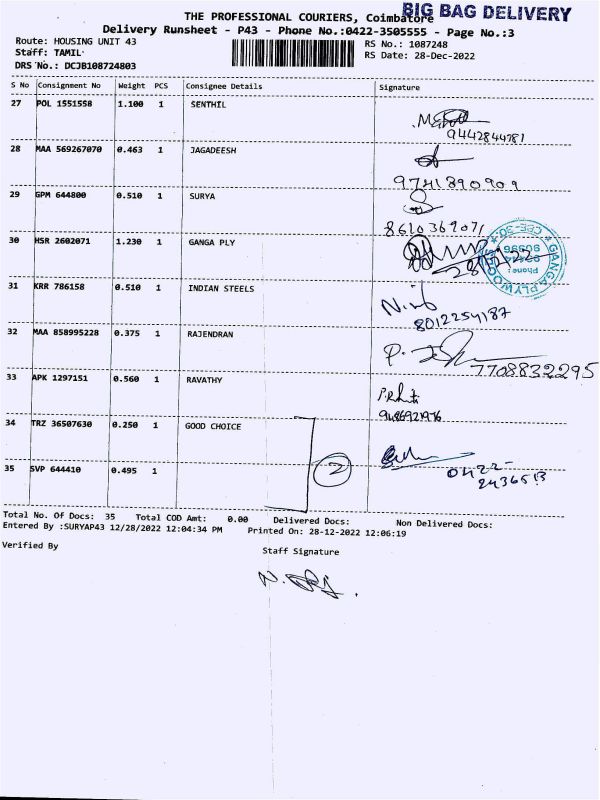 BIG BAG DELIVERY
THE PROFESSIONAL COURIERS, Coimbatore
Delivery Runsheet - P43 - Phone No.:0422-3505555 - Page No.:3
Route: HOUSING UNIT 43 RS No.: 1087248
Staff: TAMIL RS Date: 28-Dec-2022
DRS No.: DCJB108724803
S No Consignment No Weight PCS Consignee Details Signature
27 POL 1551558 1.100 1 SENTHIL
9442844781
28 MAA 569267070 0.463 1 JAGADEESH
9741890909
29 GPM 644800 0.510 1 SURYA
8610369071
30 HSR 2602071 1.230 1 GANGA PLY
28/12/22
31 KRR 786158 0.510 1 INDIAN STEELS
8012254187
32 MAA 858995228 0.375 1 RAJENDRAN
7708832295
33 APK 1297151 0.560 1 RAVATHY
9486921976
34 TRZ 36507630 0.250 1 GOOD CHOICE
2
0422-
35 SVP 644410 0.495 1
Total No. Of Docs: 35 Total COD Amt: 0.00 Delivered Docs: Non Delivered Docs:
Entered By :SURYAP43 12/28/2022 12:04:34 PM Printed On: 28-12-2022 12:06:19
Verified By Staff Signature